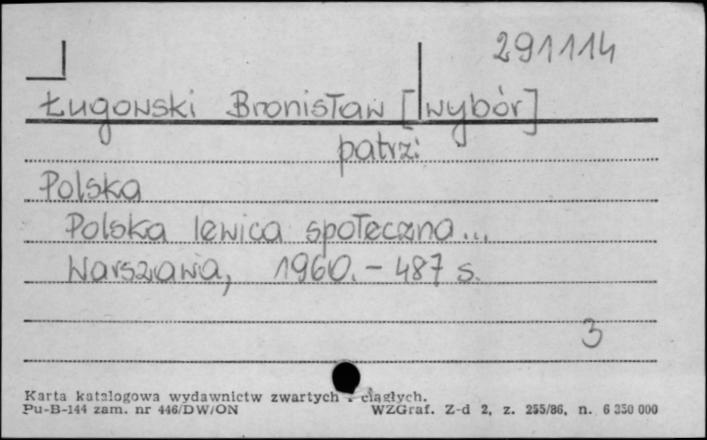 291114
Ługowski Bronisław [wybór]
patrz:
Polska
Polska lewica społeczna...
Warszawa, 1960. - 487 s.
3
Karta katalogowa wydawnictw zwartych i ciągłych.
Pu-B-144 zam. nr 446/DW/ON WZGraf. Z-d 2, z. 255/86, n. 6 350 000